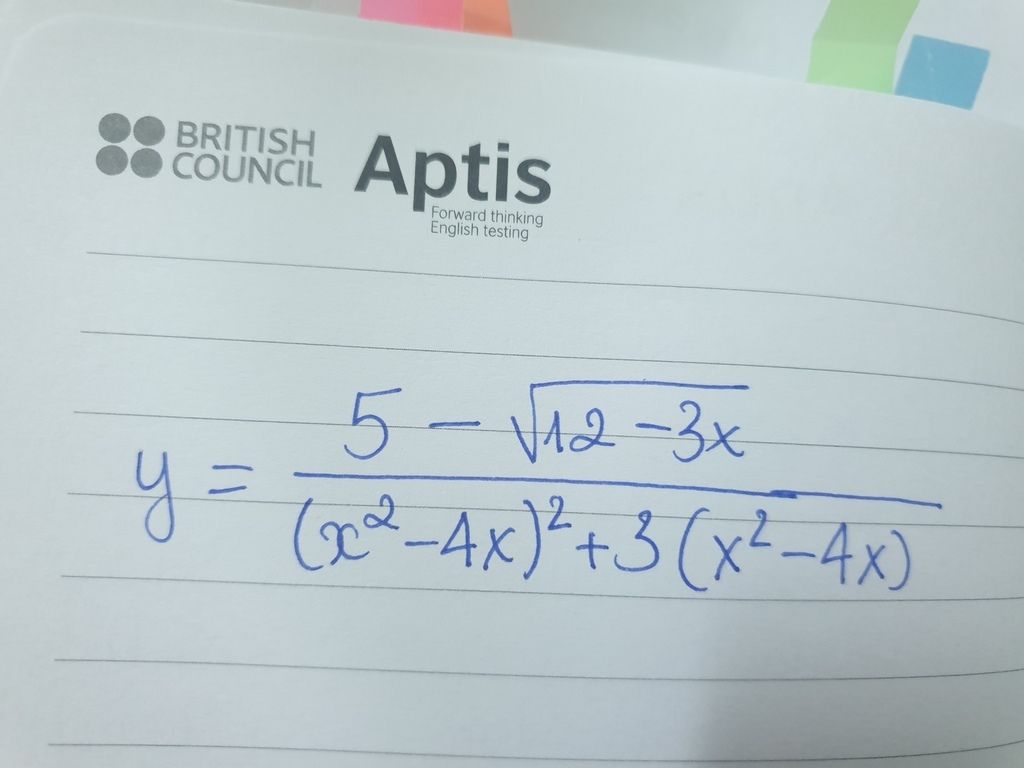 BRITISH
COUNCIL
Aptis
Forward thinking
English testing
y = \frac{5 - \sqrt{12 - 3x}}{(x^2 - 4x)^2 + 3(x^2 - 4x)}